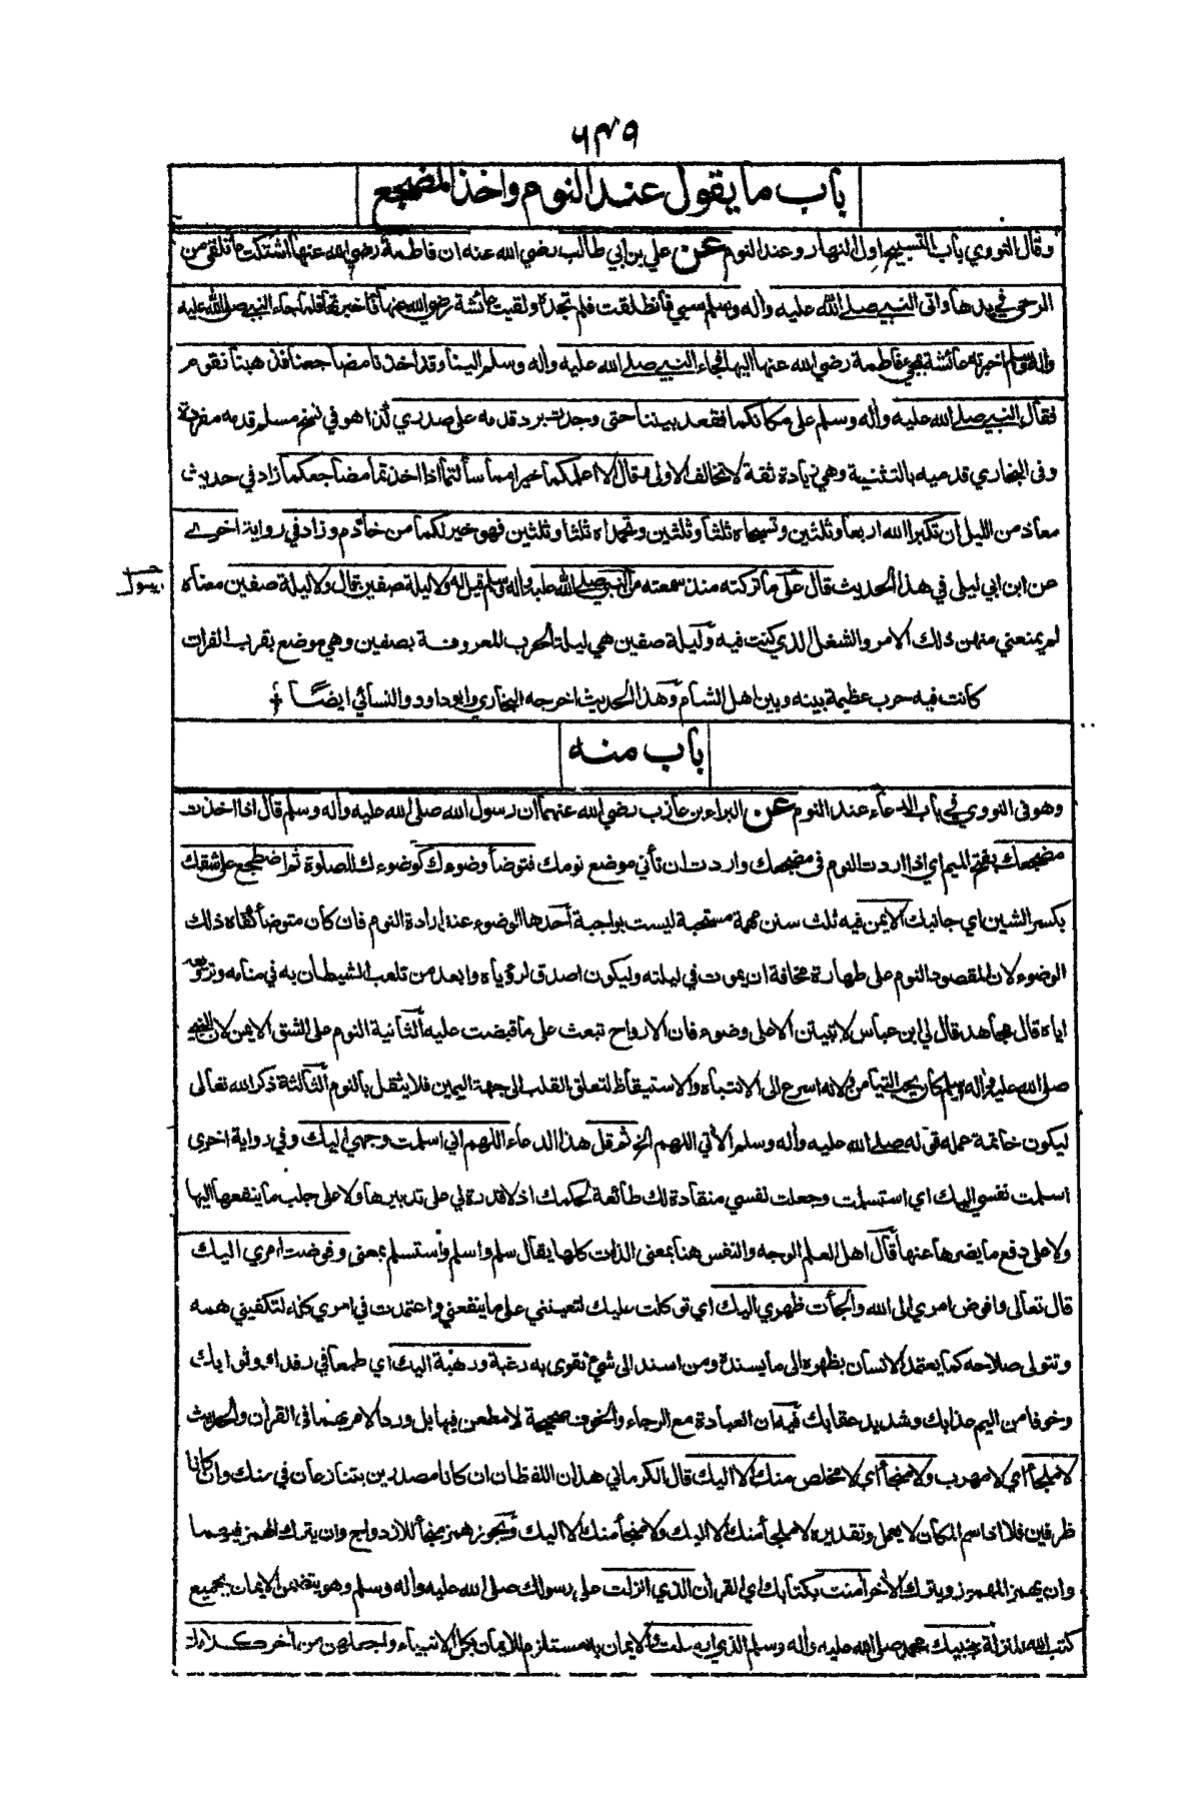 ٦٤٩
باب ما يقول عند النوم واخذ المضجع
وقال النووي باب التسبيح اول النهار وعند النوم عن علي بن ابي طالب رضي الله عنه ان فاطمة رضي الله عنها اشتكت ما تلقى من
الرحى في يدها واتى النبي صلى الله عليه واله وسلم سبي فانطلقت فلم تجده ولقيت عائشة رضي الله عنها فاخبرتها فلما جاء النبي صلى الله عليه
واله وسلم اخبرته عائشة بمجيء فاطمة رضي الله عنها اليها فجاء النبي صلى الله عليه واله وسلم الينا وقد اخذنا مضاجعنا فذهبنا نقوم
فقال النبي صلى الله عليه واله وسلم على مكانكما فقعد بيننا حتى وجدت برد قدمه على صدري كذا هو في نسخ مسلم قدمه مفردة
وفي البخاري قدميه بالتثنية وهي زيادة ثقة لا تخالف الاولى فقال الا اعلمكما خيرا مما سألتما اذا اخذتما مضاجعكما زاد في حديث
معاذ من الليل ان تكبرا الله اربعا وثلثين وتسبحاه ثلثا وثلثين وتحمداه ثلثا وثلثين فهو خير لكما من خادم وزاد في رواية اخرى
عن ابن ابي ليلى في هذا الحديث قال علي ما تركته منذ سمعته من النبي صلى الله عليه واله وسلم قيل له ولا ليلة صفين قال ولا ليلة صفين معناه
لم يمنعني منهن ذلك الامر والشغل الذي كنت فيه وليلة صفين هي ليلة الحرب المعروفة بصفين وهي موضع بقرب الفرات
كانت فيه حرب عظيمة بينه وبين اهل الشام وهذا الحديث اخرجه البخاري وابو داود والنسائي ايضا
باب منه
وهو في النووي في باب الدعاء عند النوم عن البراء بن عازب رضي الله عنهما ان رسول الله صلى الله عليه واله وسلم قال اذا اخذت
مضجعك بفتح الميم اي اذا اردت النوم في مضجعك واردت ان تأتي موضع نومك فتوضأ وضوءك كوضوءك للصلوة ثم اضطجع على شقك
بكسر الشين اي جانبك الايمن فيه ثلث سنن مهمة مستحبة ليست بواجبة احدها الوضوء عند ارادة النوم فان كان متوضأ كفاه ذلك
الوضوء لان المقصود النوم على طهارة مخافة ان يموت في ليلته وليكون اصدق لرؤياه وابعد من تلعب الشيطان به في منامه وترويعه
اياه قال مجاهد قال لي ابن عباس لا تبيتن الا على وضوء فان الارواح تبعث على ما قبضت عليه الثانية النوم على الشق الايمن لان النبي
صلى الله عليه واله وسلم كان يحب التيامن ولانه اسرع الى الانتباه والاستيقاظ لتعلق القلب الى جهة اليمين فلا يثقل بالنوم الثالثة ذكر الله تعالى
ليكون خاتمة عمله قوله صلى الله عليه واله وسلم الاتي اللهم الخ ثم قل هذا الدعاء اللهم اني اسلمت وجهي اليك وفي رواية اخرى
اسلمت نفسي اليك اي استسلمت وجعلت نفسي منقادة لك طائعة لحكمك اذ لا قدرة لي على تدبيرها ولا على جلب ما ينفعها اليها
ولا على دفع ما يضرها عنها قال اهل العلم الوجه والنفس هنا بمعنى الذات كلها يقال سلم واسلم واستسلم بمعنى وفوضت امري اليك
قال تعالى وافوض امري الى الله والجأت ظهري اليك اي توكلت عليك لتعينني على ما ينفعني واعتمدت في امري كله لتكفيني همه
وتتولى صلاحه كما يعتمد الانسان بظهره الى ما يسنده ومن اسند الى شيء تقوى به رغبة ورهبة اليك اي طمعا في رفدك وثوابك
وخوفا من اليم عذابك وشديد عقابك فيه ان العبادة مع الرجاء والخوف صحيحة لا مطعن فيها بل ورد الامر بهما في القران والحديث
لا ملجأ اي لا مهرب ولا منجأ اي لا مخلص منك الا اليك قال الكرماني هذان اللفظان ان كانا مصدرين يتنازعان في منك وان كانا
ظرفين فلا اذ اسم المكان لا يعمل وتقديره لا ملجأ منك الا اليك ولا منجأ منك الا اليك ويجوز همز منجأ للازدواج وان يترك الهمز فيهما
وان يهمز المهموز ويترك الاخر امنت بكتابك اي القران الذي انزلت على رسولك صلى الله عليه واله وسلم وهو يتضمن الايمان بجميع
كتب الله المنزلة وبنبيك محمد صلى الله عليه واله وسلم الذي ارسلت والايمان به مستلزم للايمان بكل الانبياء واجعلهن من اخر كلامك